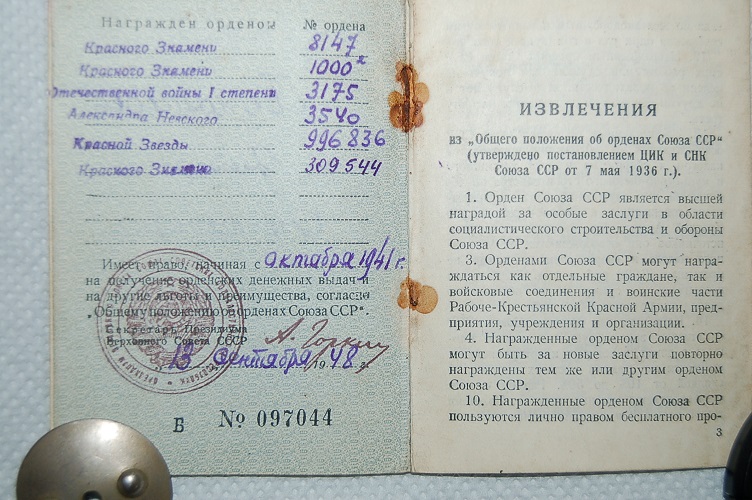 Награжден орденом № ордена
Красного Знамени 8147
Красного Знамени 1000
Отечественной войны I степени 3175
Александра Невского 3540
Красной Звезды 996836
Красного Знамени 309544
Имеет право, начиная с октября 1941 г.
на получение орденских денежных выдач и
на другие льготы и преимущества, согласно
„Общему положению об орденах Союза ССР“.
Секретарь Президиума
Верховного Совета СССР
А. Горкин
13 сентября 1948 г.
Б № 097044
ИЗВЛЕЧЕНИЯ
из „Общего положения об орденах Союза ССР“
(утверждено постановлением ЦИК и СНК
Союза ССР от 7 мая 1936 г.).
1. Орден Союза ССР является высшей
наградой за особые заслуги в области
социалистического строительства и обороны
Союза ССР.
3. Орденами Союза ССР могут награ-
ждаться как отдельные граждане, так и
войсковые соединения и воинские части
Рабоче-Крестьянской Красной Армии, пред-
приятия, учреждения и организации.
4. Награжденные орденом Союза ССР
могут быть за новые заслуги повторно
награждены тем же или другим орденом
Союза ССР.
10. Награжденные орденом Союза ССР
пользуются лично правом бесплатного про-
3